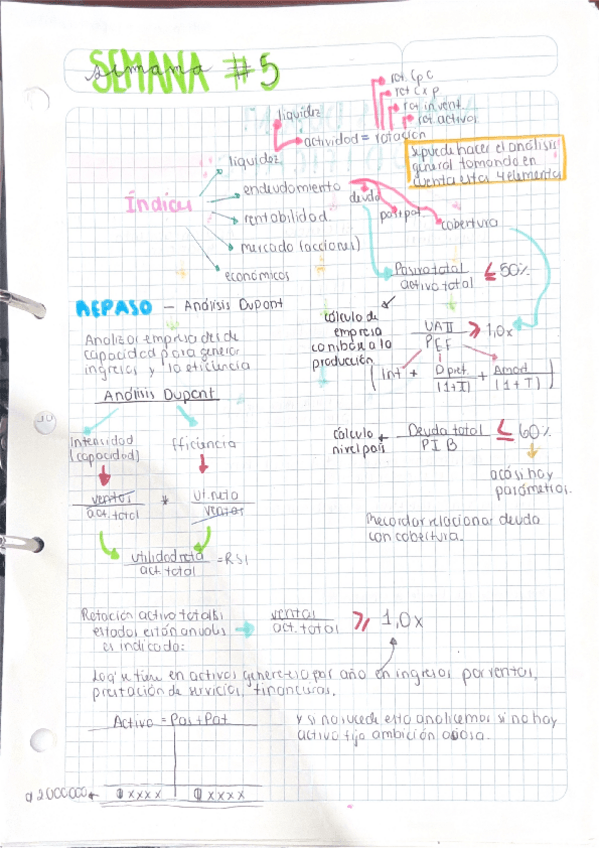 SEMANA #5
semana
rot. CpC
rot CxP
rot invent
rot. activos
liquidez
actividad = rotación
se puede hacer el análisis
general tomando en
cuenta estos 4 elementos
Índices
liquidez
endeudamiento
rentabilidad
mercado (acciones)
económicos
deuda
pas+pat.
cobertura
Pasivo total
activo total
≤ 50%
REPASO — Análisis Dupont
Analizar empresa desde
capacidad para generar
ingresos y la eficiencia
Análisis Dupont
Intensidad
(capacidad)
Eficiencia
ventas
act. total
*
ut neta
ventas
utilidad neta
act. total
= RSI
cálculo de
empresa
la
producción
UAII
PEF
≥ 1,0x
(Int + D pref. + Amort)
(1+T) (1+T)
cálculo
nivel país
Deuda total
PIB
≤ 60%
acá si hay
parámetros.
Recordar relacionar deuda
con cobertura.
Rotación activo total: si
estados están anuales
es indicado:
ventas
act. total
≥ 1,0x
Lo q' se tiene en activos genere eso por año en ingresos por ventas,
prestación de servicios, financieros.
Activo = Pas + Pat
y si no sucede esto analicemos si no hay
activo fijo ambición ociosa.
2000000
xxxx
xxxx